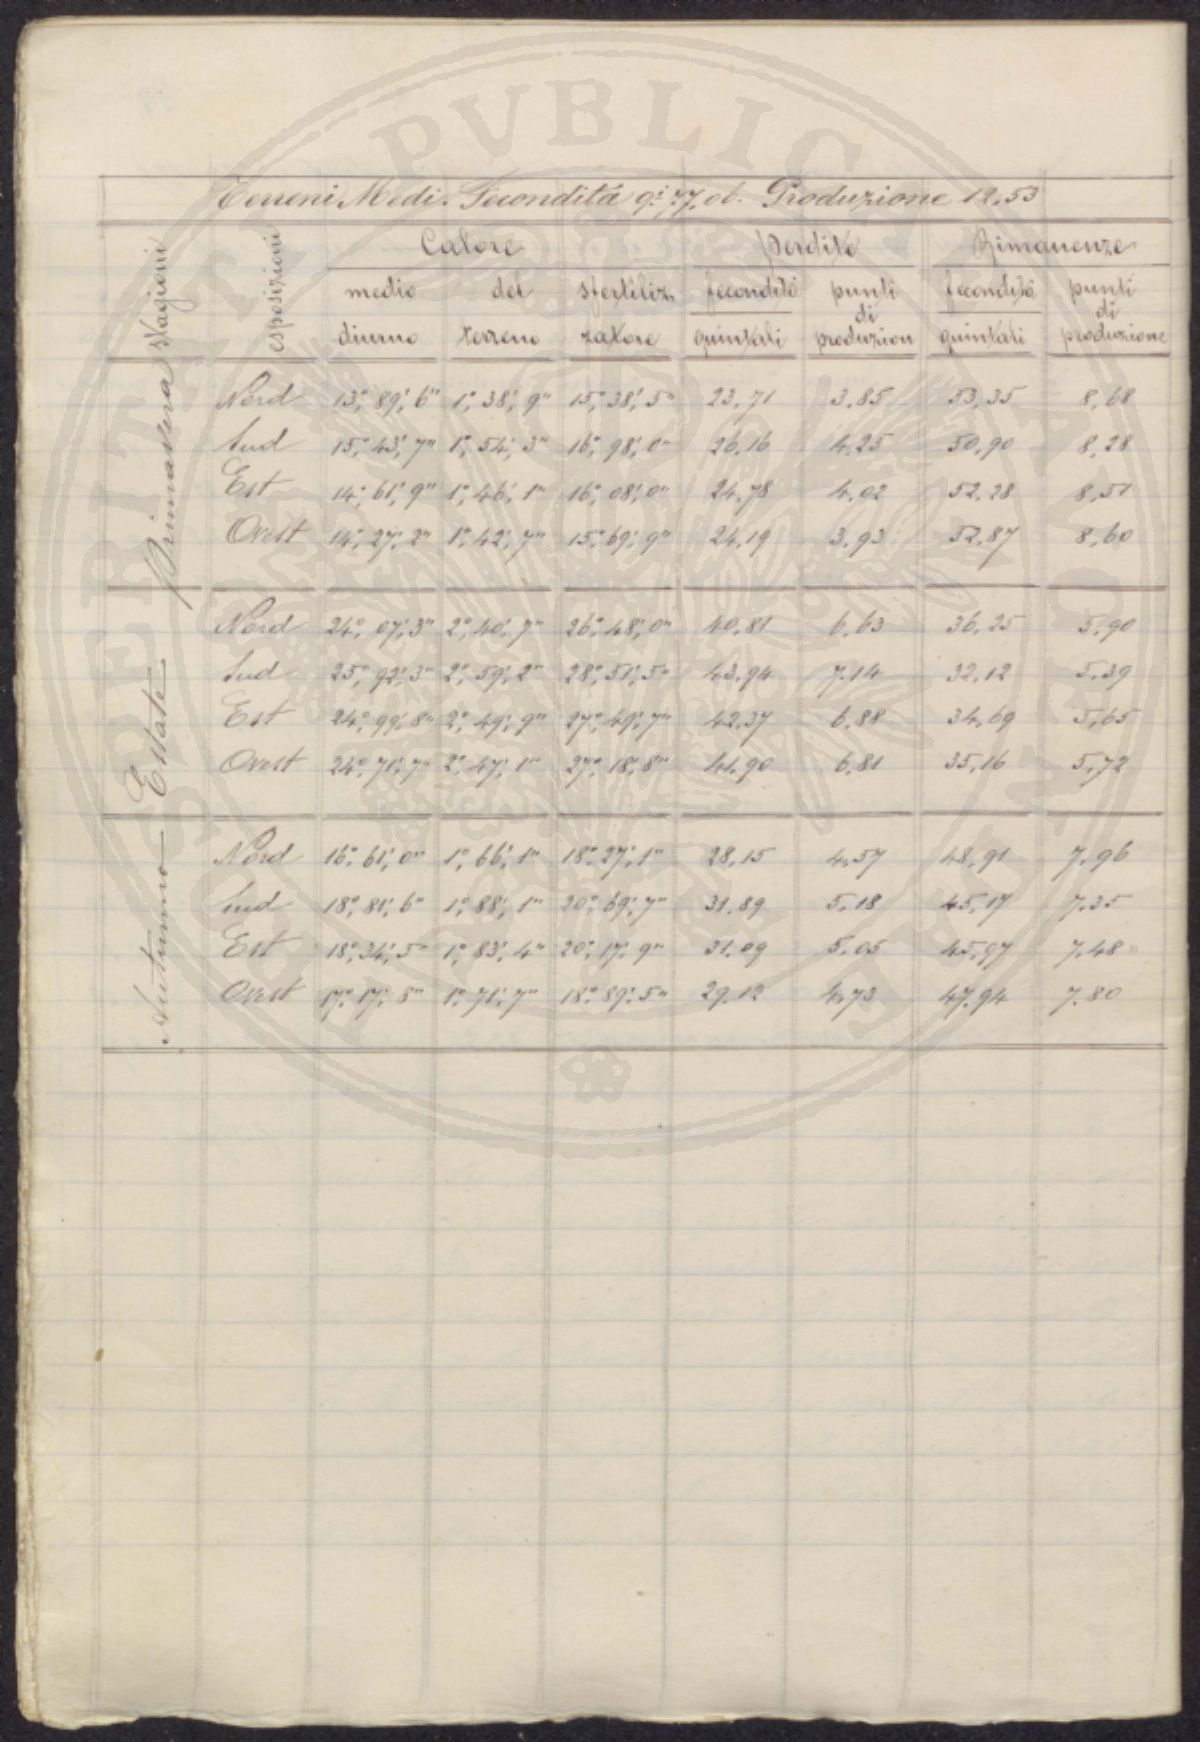 Terreni Medi. Fecondità q.i 77,06. Produzione 12.53
Stagioni esposizioni Calore Perdite Rimanenze
medio del sfertiliz fecondità punti fecondità punti
di di
diurno terreno zatore quintali produzion quintali produzione
Primavera
Nord 13°, 89', 6" 1°, 38', 9" 15°, 38', 5" 23,71 3.85 53,35 8,68
Sud 15°, 43', 7" 1°, 54', 3" 16°, 98', 0" 26,16 4,25 50,90 8,28
Est 14°, 61', 9" 1°, 46', 1" 16°, 08', 0" 24,78 4,02 52,28 8,51
Ovest 14°, 27', 2" 1°, 42', 7" 15°, 69', 9" 24,19 3,93 52,87 8,60
Estate
Nord 24°, 07', 3" 2°, 40', 7" 26°, 48', 0" 40,81 6,63 36,25 5,90
Sud 25°, 92', 3" 2°, 59', 2" 28°, 51', 5" 43,94 7,14 32,12 5,39
Est 24°, 99', 8" 2°, 49', 9" 27°, 49', 7" 42,37 6,88 34,69 5,65
Ovest 24°, 71', 7" 2°, 47', 1" 27°, 18', 8" 41,90 6,81 35,16 5,72
Autunno
Nord 16°, 61', 0" 1°, 66', 1" 18°, 27', 1" 28,15 4,57 48,91 7,96
Sud 18°, 81', 6" 1°, 88', 1" 20°, 69', 7" 31,89 5,18 45,17 7,35
Est 18°, 34', 5" 1°, 83', 4" 20°, 17', 9" 31,09 5,05 45,97 7,48
Ovest 17°, 17', 8" 1°, 71', 7" 18°, 89', 5" 29,12 4,73 47,94 7,80